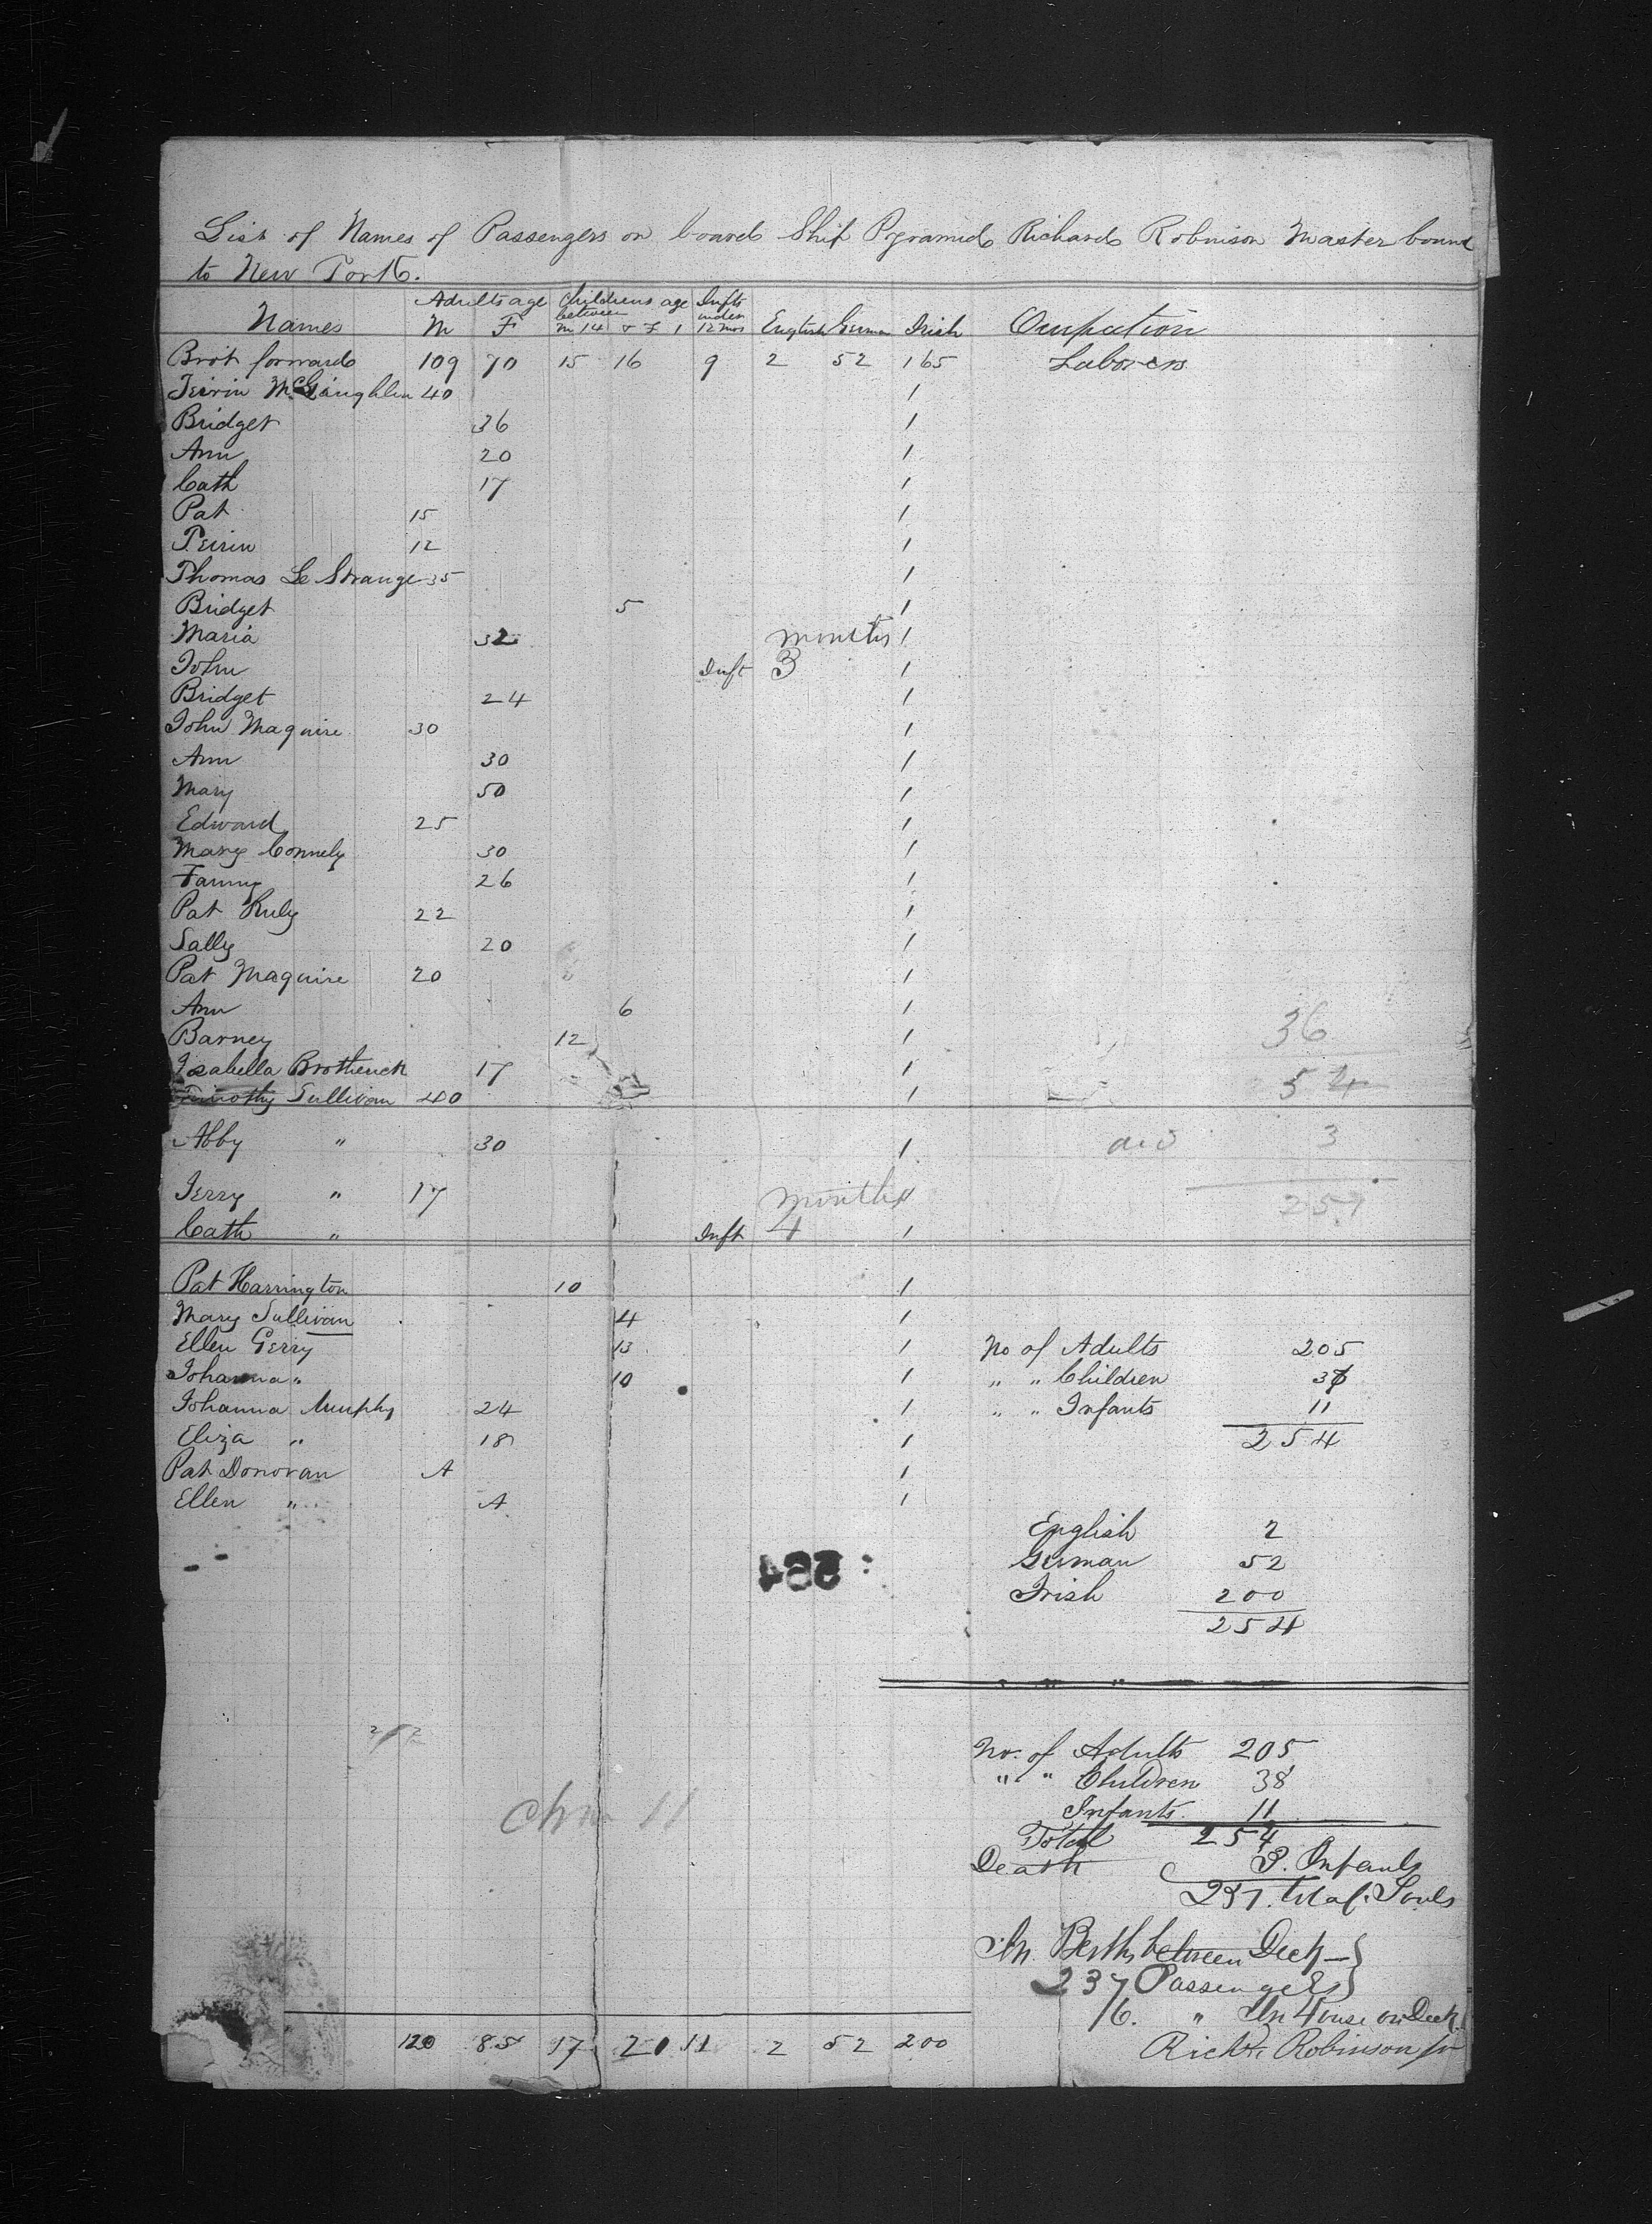 List of Names of Passengers on board Ship Pyramid Richard Robinson Master bound
to New York.
Names Adults age M F Childrens age between M 14 & F 1 Infts under 12 mos English German Irish Occupation
Brot forward 109 70 15 16 9 2 52 165 Laborers
McLaughlin 40 1
Bridget 36 1
Ann 20 1
Cath 17 1
Pat 15 1
12 1
Thomas Le Strange 35 1
Bridget 5 1
Maria 32 months 1
John Inft 3 1
Bridget 24 1
John Maguire 30 1
Ann 30 1
Mary 50 1
Edward 25 1
Mary Connely 30 1
Fanny 26 1
Pat 22 1
Sally 20 1
Pat Maguire 20 1
Ann 6 1
Barney 12 1 36
Isabella Brotherick 17 1
Timothy Sullivan 40 1 54
Abby " 30 1 3
Jerry " 17 months 1 257
Cath " Inft 4 1
Pat Harrington 10 1
Mary Sullivan 4 1
Ellen Gerry 13 1 No of Adults 205
Johanna " 10 1 " " Children
Johanna Murphy 24 1 " " Infants 11
Eliza " 18 1 254
Pat Donovan A 1
Ellen " A 1
English 2
German 52
Irish 200
254
No. of Adults 205
" " Children 38
Infants 11
Total 254
Death 3. Infants
257. total Souls
In Berths between Deck
237 Passengers
16. " In House on Deck
120 85 17 20 11 2 52 200 Richd. Robinson